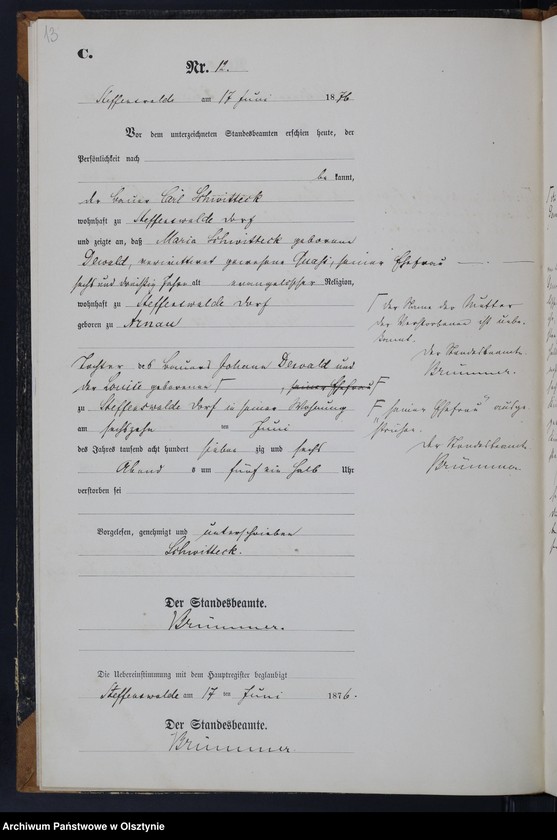 13
C.
Nr. 12.
Steffenswalde am 17 Juni 1876
Vor dem unterzeichneten Standesbeamten erschien heute, der
Persönlichkeit nach
be kannt,
der Bauer Carl Schwitteck
wohnhaft zu Steffenswalde Dorf
und zeigte an, daß Maria Schwitteck geborene
Dewald, verwittwet gewesene seiner Ehefrau
sechs und dreißig Jahre alt evangelischer Religion,
wohnhaft zu Steffenswalde Dorf
geboren zu Arnau
Tochter des Bauers Johann Dewald und
der Louise geborenen Γ , seiner Ehefrau F
zu Steffenswalde Dorf in seiner Wohnung
am sechszehn ten Juni
des Jahres tausend acht hundert sieben zig und sechs
Abend s um fünf ein halb Uhr
verstorben sei
Vorgelesen, genehmigt und unterschrieben
Schwitteck.
Der Standesbeamte.
Brümmer.
Die Uebereinstimmung mit dem Hauptregister beglaubigt
Steffenswalde am 17 ten Juni 1876.
Der Standesbeamte.
Brümmer.
Γ der Name der Mutter
der Verstorbenen ist unbe-
kannt.
Der Standesbeamte
Brümmer.
F "seiner Ehefrau" ausge-
strichen.
Der Standesbeamte
Brümmer
Archiwum Państwowe w Olsztynie